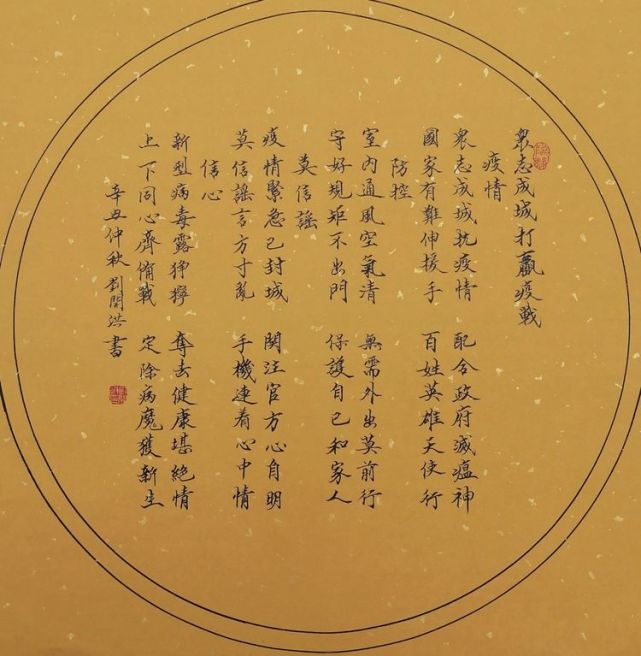 衆志成城打贏疫戰
疫情
衆志成城抗疫情 配合政府滅瘟神
國家有難伸援手 百姓英雄天使行
防控
室內通風空氣清 無需外出莫前行
守好規矩不出門 保護自己和家人
莫信謠
疫情緊急已封城 関注官方心自明
莫信謠言方寸亂 手機連看心中情
信心
新型病毒露猙獰 奪去健康堪絕情
上下同心齊備戰 定除病魔獲新生
辛丑仲秋劉開洪書